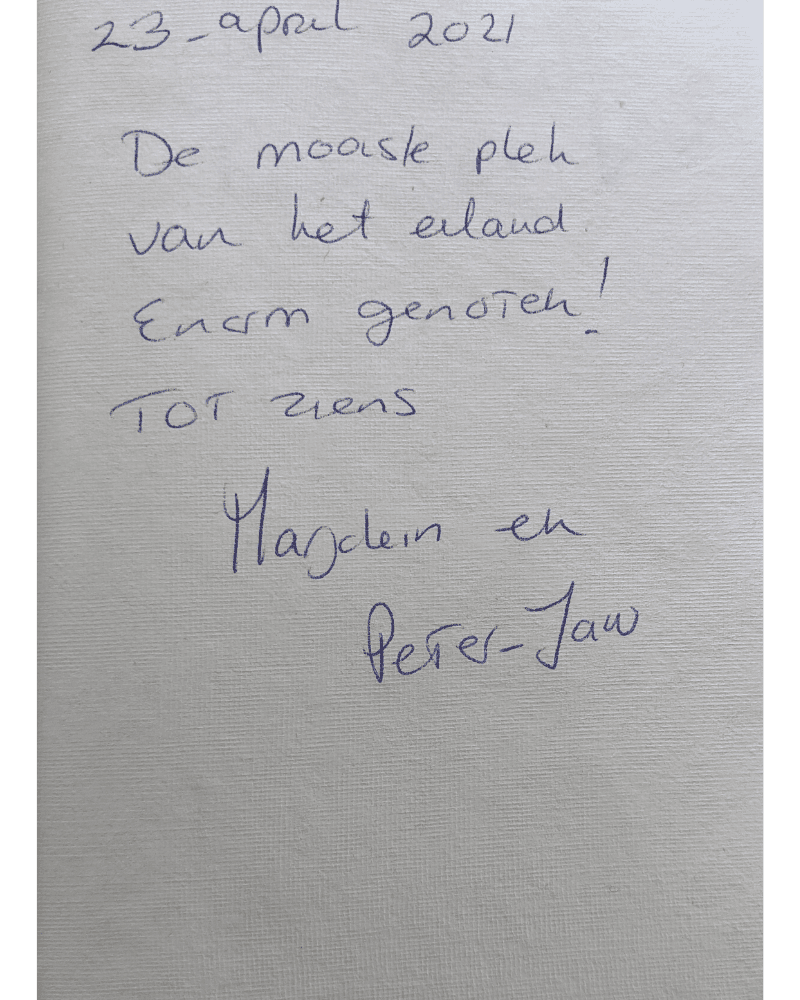 23-april 2021
De mooiste plek
van het eiland
Enorm genoten!
TOT ziens
Marjolein en
Peter-Jan